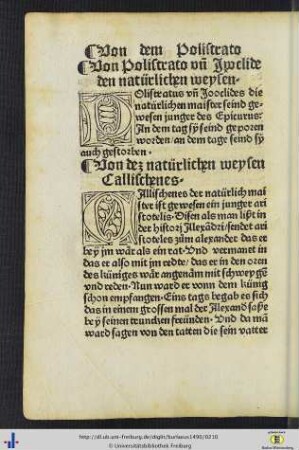 ¶Von dem Polistrato
¶Von Polistrato vñ Jpoelide
den natürlichen weysen·
POlistratus vñ Jpoclides die
natürlichen maister seind ge-
wesen junger des Epicurus·
Jn dem tag sy seind geporen
worden· an dem tage seind sy
auch gestorben·
¶Von dez natürlichen weysen
Callischenes·
CAllischenes der natürlich mai
ster ist gewesen ein junger ari
stotelis· Disen als man lißt in
der histori Allexãdri/ sendet ari
stoteles zům alexander das er
bey jm wär als ein rat· Vnd vermanet in
das er also mit jm redte/ das er in den oren
des küniges wär angenäm mit schweygẽ
vnd reden· Nun ward er vonn dem künig
schon empfangen· Eins tags begab es sich
das in einem grossen mal der Alexand saße
bey seinen truncken freünden· Vnd da mã
ward sagen von den tatten die sein vatter
http://dl.ub.uni-freiburg.de/diglit/burlaeus1490/0210
© Universitätsbibliothek Freiburg